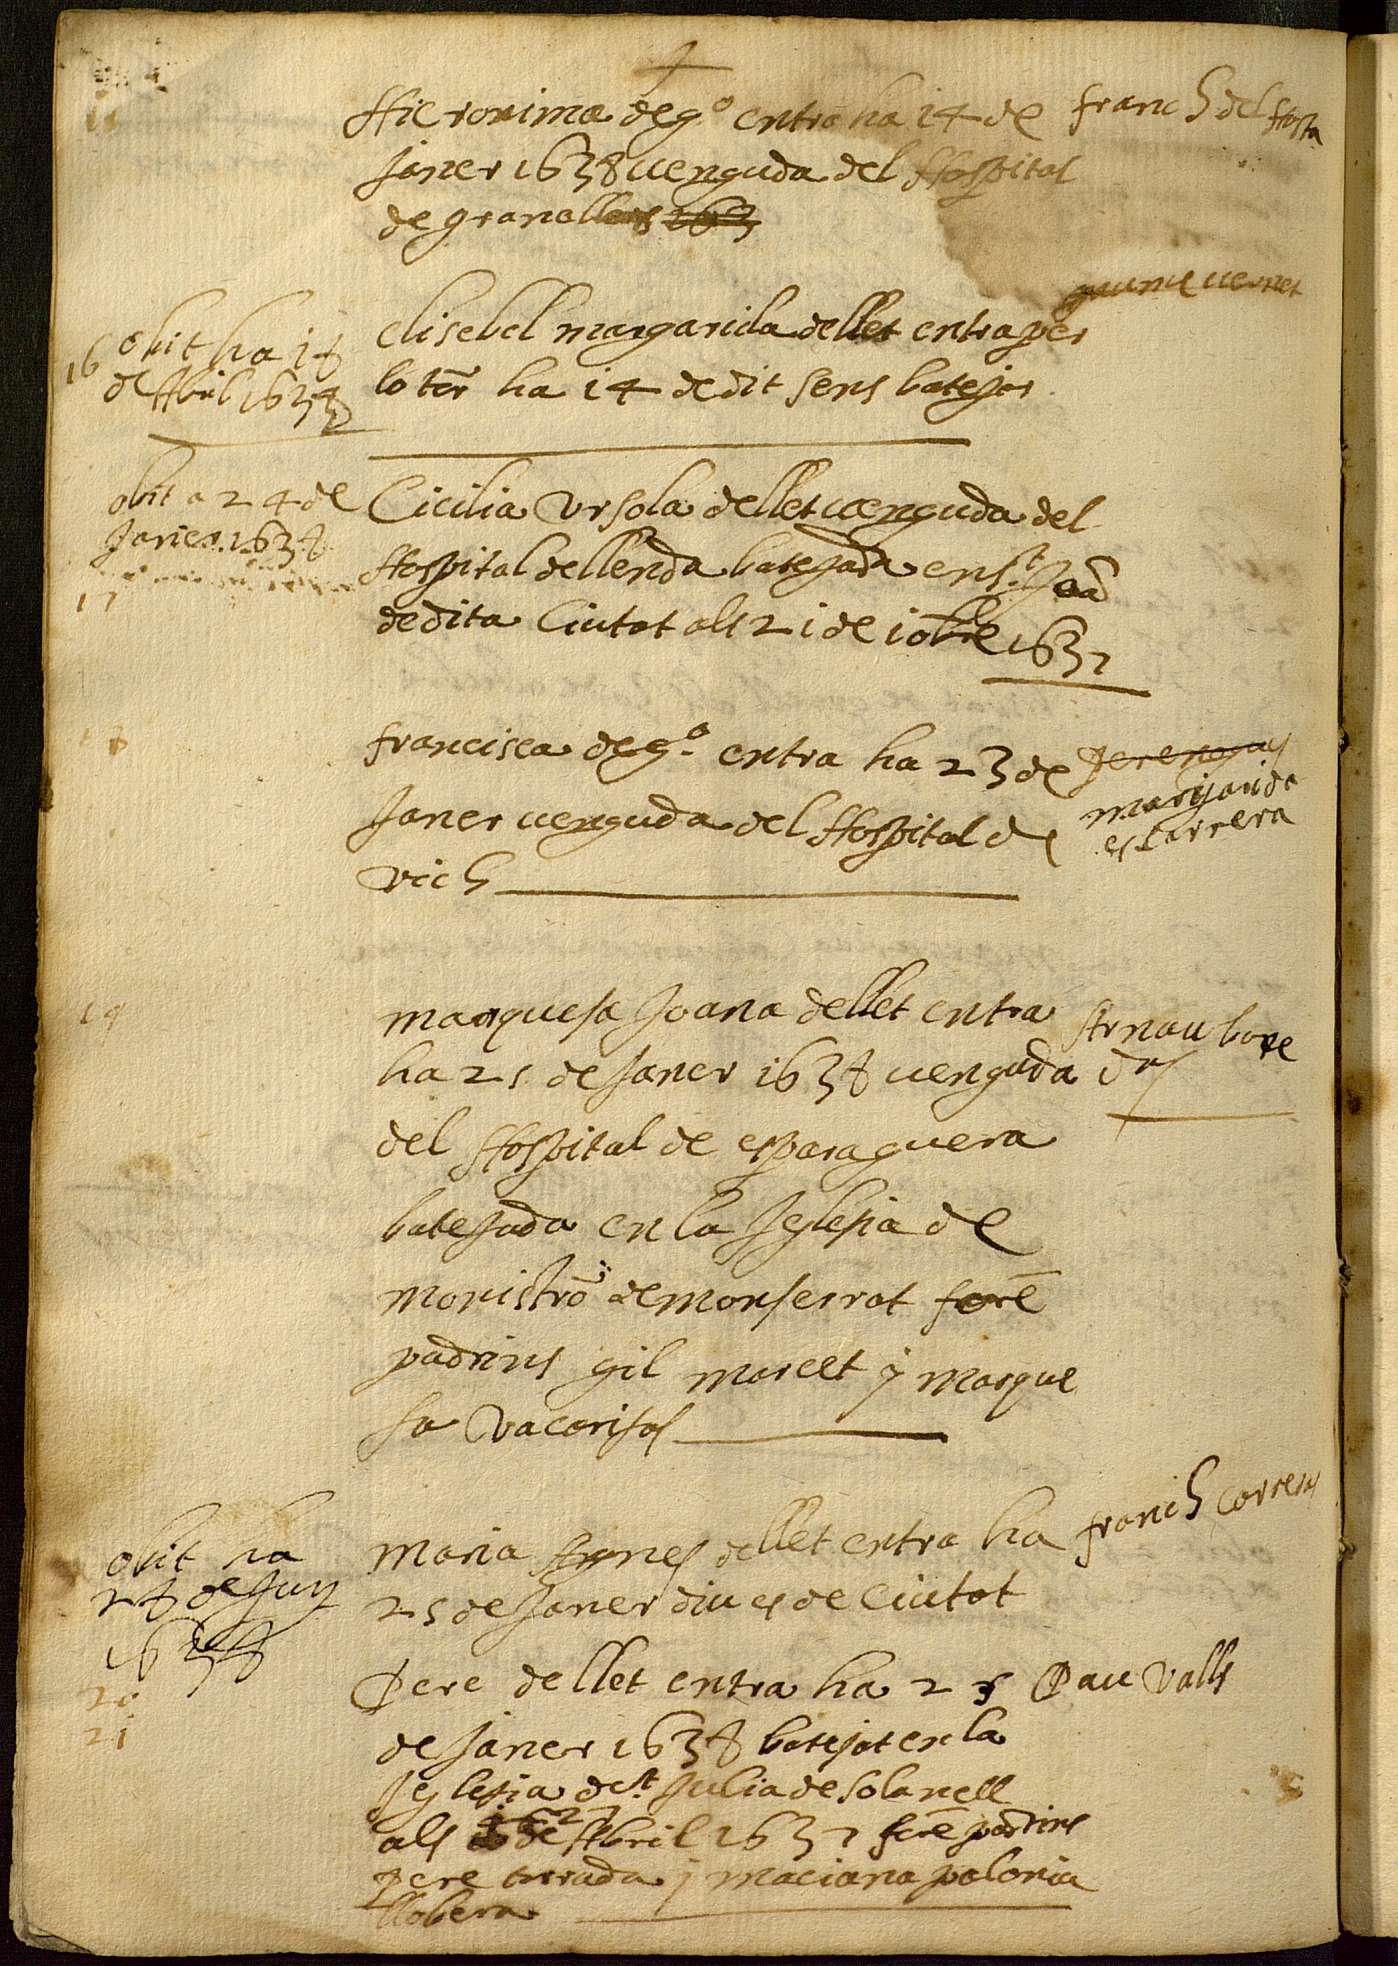 Hieronima de gº entra ha 14 de
Janer 1638 venguda del Hospital
de granollers 163
franch del Hosta
Jaume vernet
16 obit ha 18
de Abril 1638
elisebel margarida de llet entra per
lo torn ha 14 de dit sens batejar
obit a 24 de
Janer 1638
17
Cicilia Ursola de llet venguda del
Hospital de lleyda batejada en st Joā
de dita Ciutat als 21 de 10bre 1637
18
francisca de gº entra ha 23 de
Janer venguda del Hospital de
vich
margarida
escarrera
19
marquesa Joana de llet entra
ha 25 de Janer 1638 venguda
del Hospital de esparaguera
batejada en la Iglesia de
monistrō de monserrat forē
padrins gil marcet y marque
sa vacarisas
Arnau bove
obit ha
28 de Juny
1638
20
maria Agnes de llet entra ha
25 de Janer diu es de Ciutat
franch Correras
21
Pere de llet entra ha 25
de Janer 1638 batejat en la
Iglesia de st Julia de solanell
als de Abril 1637 forē padrins
pere torrada y maciana polonia
llobera
Pau Valls